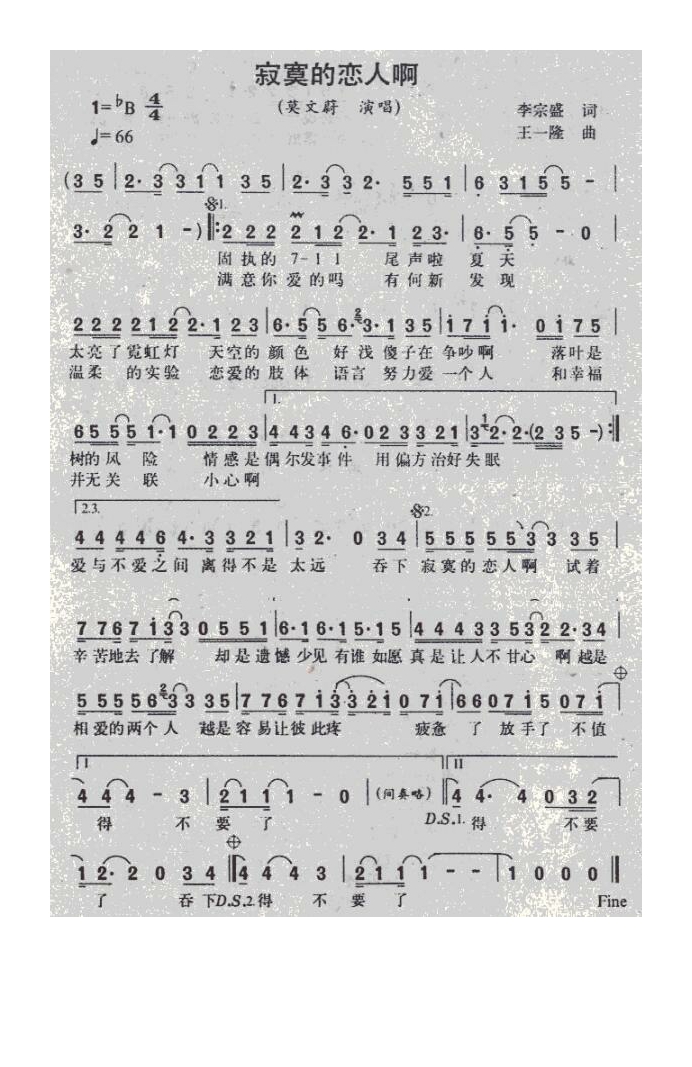 寂寞的恋人啊
1=♭B 4/4
(莫文蔚 演唱)
李宗盛 词
♩=66
王一隆 曲
(3 5 | 2· 3 3 1 1 3 5 | 2· 3 3 2· 5 5 1 | 6 3 1 5 5 - |
𝄋1.
3· 2 2 1 -) ‖: 2 2 2 2 1 2 2· 1 2 3· | 6· 5 5 - 0 |
固执的 7-11 尾声啦 夏天
满意你爱的吗 有何新 发现
2 2 2 2 1 2 2· 1 2 3 | 6· 5 5 6· 3· 1 3 5 | 1 7 1 1· 0 1 7 5 |
太亮了霓虹灯 天空的 颜色 好浅傻子在 争吵啊 落叶是
温柔 的实验 恋爱的 肢体 语言 努力爱 一个人 和幸福
1.
6 5 5 5 5 1· 1 0 2 2 3 | 4 4 3 4 6· 0 2 3 3 2 1 | 3 2· 2· (2 3 5 -) :‖
树的 风 险 情感是 偶尔发事件 用偏方治好 失眠
并无 关 联 小心啊
2.3.
𝄋2.
4 4 4 4 6 4· 3 3 2 1 | 3 2· 0 3 4 | 5 5 5 5 5 3 3 3 5 |
爱与不爱之间 离得不是 太远 吞下 寂寞的恋人啊 试着
7 7 6 7 1 3 3 0 5 5 1 | 6· 1 6· 1 5· 1 5 | 4 4 4 3 3 5 3 2 2· 3 4 |
辛苦地去了解 却是遗憾 少见有谁如愿 真是让人不甘心 啊 越是
5 5 5 5 5 6 3 3 3 5 | 7 7 6 7 1 3 3 2 1 0 7 1 | 6 6 0 7 1 5 0 7 1 |
相爱的两个人 越是容易让彼此疼 疲惫 了 放手了 不值
I
II
4 4 4 - 3 | 2 1 1 1 - 0 | (间奏略) ‖ 4 4· 4 0 3 2 |
得 不要了 D.S.1. 得 不要
1 2· 2 0 3 4 ‖ 4 4 4 3 | 2 1 1 1 - - | 1 0 0 0 ‖
了 吞下 D.S.2. 得 不要了 Fine